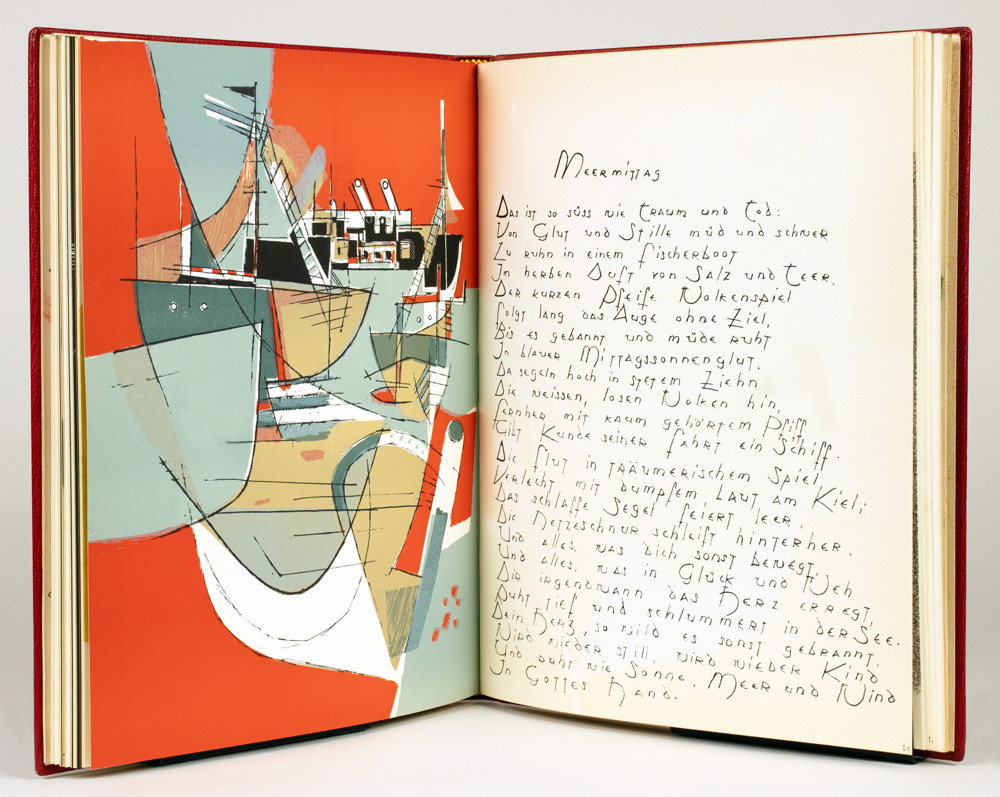 Meermittag
Das ist so süss wie Traum und Tod:
Von Glut und Stille müd und schwer
Zu ruhn in einem Fischerboot
In herben Duft von Salz und Teer.
Der kurzen Pfeife Wolkenspiel
Folgt lang das Auge ohne Ziel,
Bis es gebannt und müde ruht
In blauer Mittagssonnenglut.
Da segeln hoch in stetem Ziehn
Die weissen, losen Wolken hin,
Fernher mit kaum gehörtem Pfiff
Gibt Kunde seiner Fahrt ein Schiff.
Die Flut in träumerischem Spiel
Verlecht mit dumpfem Laut am Kiel;
Das schlaffe Segel feiert leer,
Die Netzeschnur schleift hinterher.
Und alles, was dich sonst bewegt,
Und alles, was in Glück und Weh
Dir irgendwann das Herz erregt,
Ruht tief und schlummert in der See.
Dein Herz, so wild es sonst gebrannt,
Wird wieder still, wird wieder Kind
Und ruht wie Sonne, Meer und Wind
In Gottes Hand.